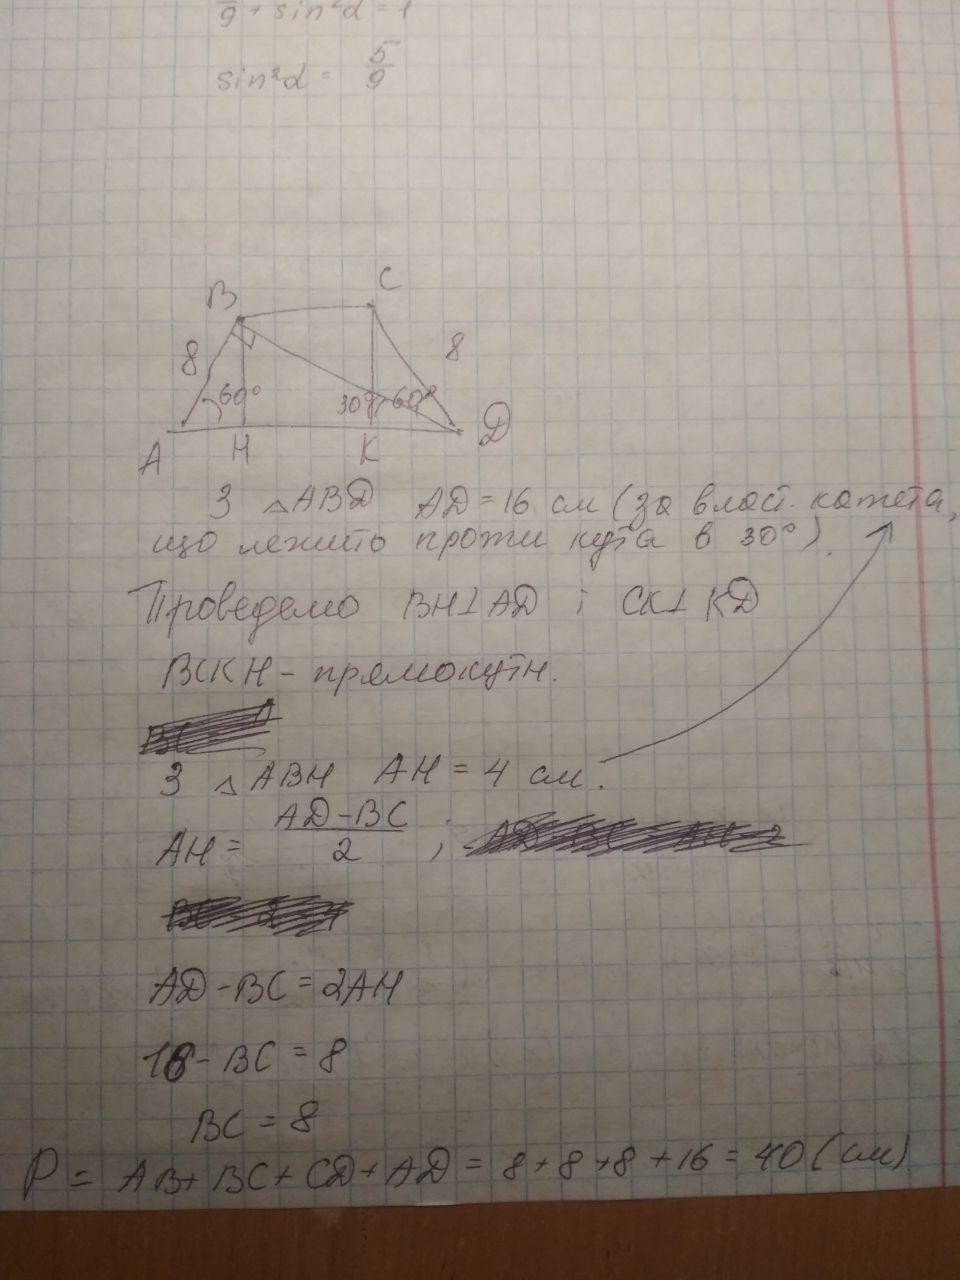 9 + sin²α = 1
sin²α = 5/9
B
C
8
8
60°
30°
60°
A
H
K
D
З △ABD AD = 16 см (за власт. катета,
що лежить проти кута в 30°).
Проведемо BH⊥AD і CK⊥KD
BCKH - прямокутн.
З △ABH AH = 4 см.
AH = (AD-BC)/2 ;
AD - BC = 2AH
16 - BC = 8
BC = 8
P = AB + BC + CD + AD = 8 + 8 + 8 + 16 = 40 (см)